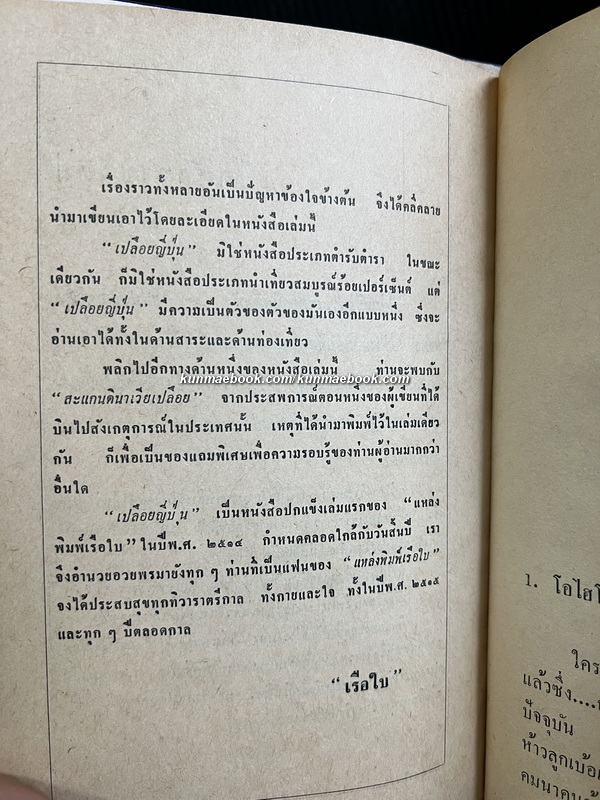 เรื่องราวทั้งหลายอันเป็นปัญหาข้องใจข้างต้น จึงได้คลี่คลาย
นำมาเขียนเอาไว้โดยละเอียดในหนังสือเล่มนี้
“เปลือยญี่ปุ่น” มิใช่หนังสือประเภทตำรับตำรา ในขณะ
เดียวกัน ก็มิใช่หนังสือประเภทนำเที่ยวสมบูรณ์ร้อยเปอร์เซ็นต์ แต่
“เปลือยญี่ปุ่น” มีความเป็นตัวของตัวของมันเองอีกแบบหนึ่ง ซึ่งจะ
อ่านเอาได้ทั้งในด้านสาระและด้านท่องเที่ยว
พลิกไปอีกทางด้านหนึ่งของหนังสือเล่มนี้ ท่านจะพบกับ
kunmaebook.com/kunmaebook.com
“สะแกนดิเนเวียเปลือย” จากประสพการณ์ตอนหนึ่งของผู้เขียนที่ได้
บินไปสังเกตุการณ์ในประเทศนั้น เหตุที่ได้นำมาพิมพ์ไว้ในเล่มเดียว
กัน ก็เพื่อเป็นของแถมพิเศษเพื่อความรอบรู้ของท่านผู้อ่านมากกว่า
อื่นใด
“เปลือยญี่ปุ่น” เป็นหนังสือปกแข็งเล่มแรกของ “แหล่ง
พิมพ์เรือใบ” ในปีพ.ศ. ๒๕๑๔ กำหนดคลอดใกล้กับวันสิ้นปี เรา
จึงอำนวยอวยพรมายังทุก ๆ ท่านที่เป็นแฟนของ “แหล่งพิมพ์เรือใบ”
จงได้ประสบสุขทุกทิวาราตรีกาล ทั้งกายและใจ ทั้งในปีพ.ศ. ๒๕๑๕
และทุก ๆ ปีตลอดกาล
“เรือใบ”
1. โอไฮโ
ใคร
แล้วซึ่ง....
ปัจจุบัน
ห้าวลูกเบ้อ
คมนาคม